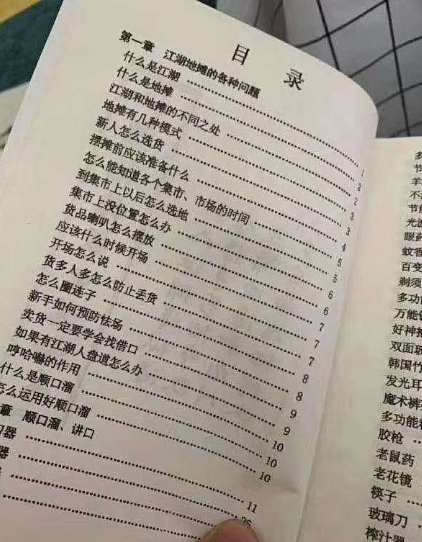 目 录
第一章 江湖地摊的各种问题
什么是江湖
什么是地摊 1
江湖和地摊的不同之处 2
地摊有几种模式 2
新人怎么选货 3
摆摊前应该准备什么 3
怎么能知道各个集市、市场的时间 4
到集市上以后怎么选地 5
集市上没位置怎么办 5
货品喇叭怎么摆放 5
应该什么时候开场 6
开场怎么说 6
货多人多怎么防止丢货 6
怎么圈连子 7
新手如何预防怯场 7
卖货一定要学会找借口 7
如果有江湖人盘道怎么办 8
哼哈嘞的作用 8
什么是顺口溜 9
怎么运用好顺口溜 9
章 顺口溜、讲口 10
刀器 10
器 10
11
26
羊
光波
眼药
蚊香
百变
剃须
多功能
万能钥
好神拖
双面玻
韩国竹
发光耳
魔术裤
多功能
胶枪
老鼠药
老花镜
筷子
玻璃刀
榨汁器